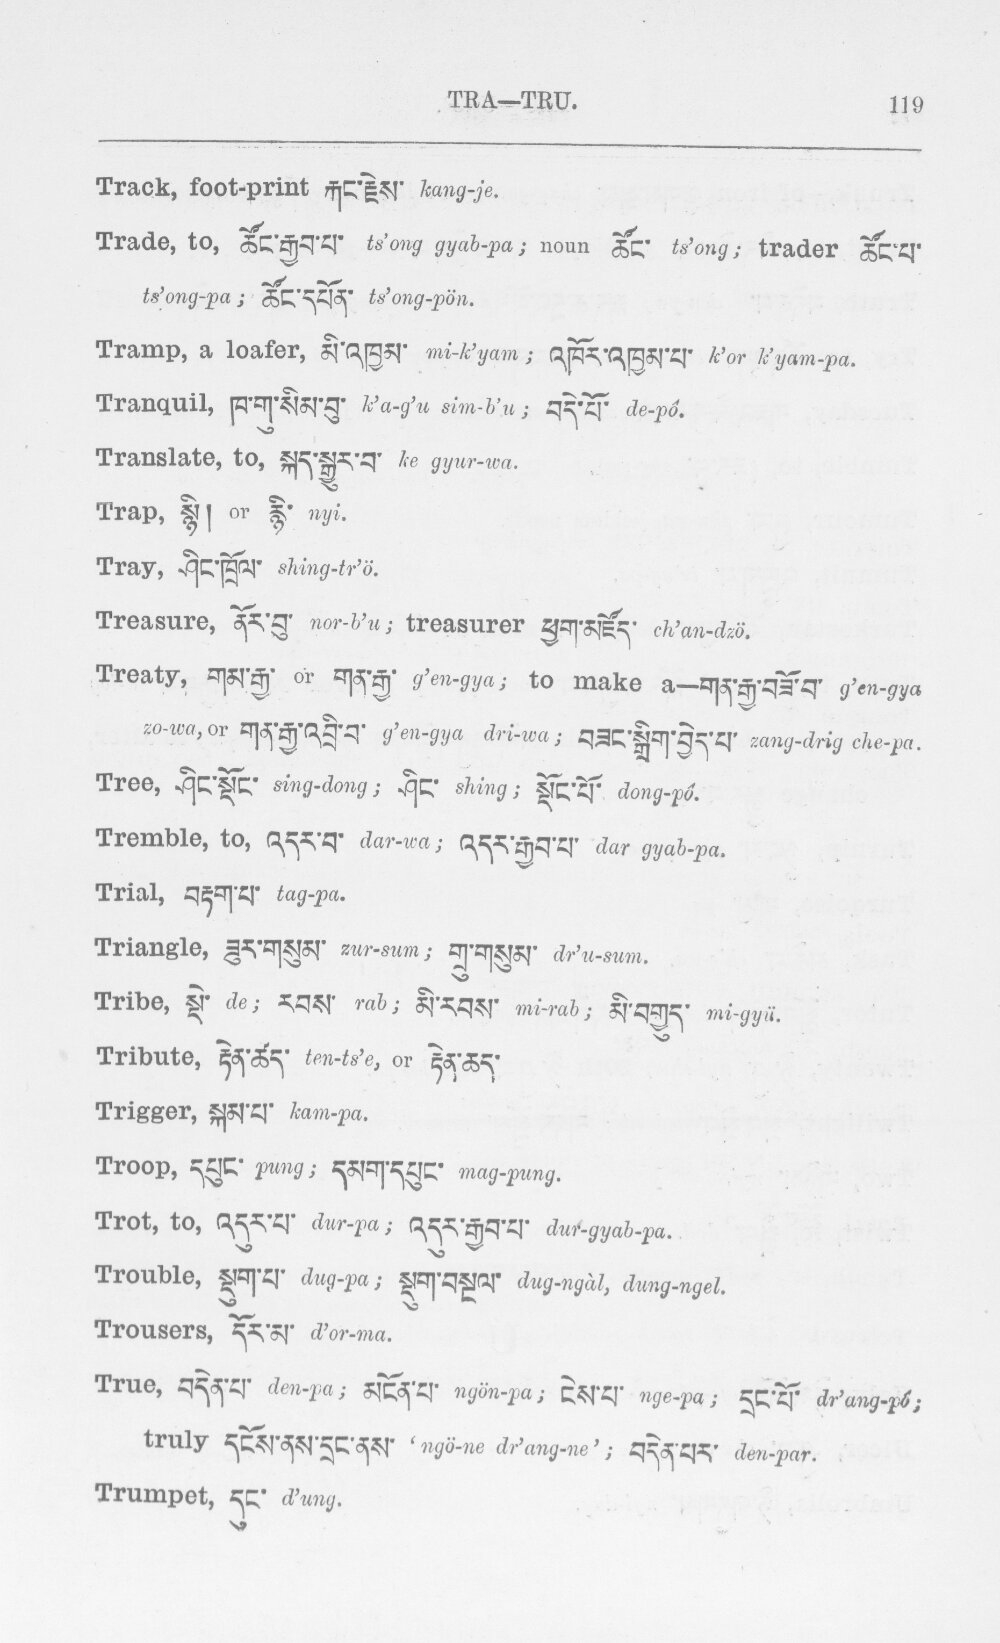 TRA—TRU. 119
Track, foot-print རྐང་རྗེས་ kang-je.
Trade, to, ཚོང་རྒྱབ་པ་ ts'ong gyab-pa; noun ཚོང་ ts'ong; trader ཚོང་པ་
ts'ong-pa; ཚོང་དཔོན་ ts'ong-pön.
Tramp, a loafer, མི་འཁྱམ་ mi-k'yam; འཁོར་འཁྱམ་པ་ k'or k'yam-pa.
Tranquil, ཁ་གུ་སིམ་བུ་ k'a-g'u sim-b'u; བདེ་པོ་ de-pó.
Translate, to, སྐད་སྒྱུར་བ་ ke gyur-wa.
Trap, སྙི། or རྙི་ nyi.
Tray, ཤིང་ཁྲོལ་ shing-tr'ö.
Treasure, ནོར་བུ་ nor-b'u; treasurer ཕྱག་མཛོད་ ch'an-dzö.
Treaty, གམ་རྒྱ་ or གན་རྒྱ་ g'en-gya; to make a—གན་རྒྱ་བཟོ་བ་ g'en-gya
zo-wa, or གན་རྒྱ་འབྲི་བ་ g'en-gya dri-wa; བཟང་སྒྲིག་བྱེད་པ་ zang-drig che-pa.
Tree, ཤིང་སྡོང་ sing-dong; ཤིང་ shing; སྡོང་པོ་ dong-pó.
Tremble, to, འདར་བ་ dar-wa; འདར་རྒྱབ་པ་ dar gyab-pa.
Trial, བརྟག་པ་ tag-pa.
Triangle, ཟུར་གསུམ་ zur-sum; གྲུ་གསུམ་ dr'u-sum.
Tribe, སྡེ་ de; རབས་ rab; མི་རབས་ mi-rab; མི་བགྱུད་ mi-gyü.
Tribute, རྟེན་ཚད་ ten-ts'e, or རྟེན་ཆད་
Trigger, སྐམ་པ་ kam-pa.
Troop, དཔུང་ pung; དམག་དཔུང་ mag-pung.
Trot, to, འདུར་པ་ dur-pa; འདུར་རྒྱབ་པ་ dur-gyab-pa.
Trouble, སྡུག་པ་ dug-pa; སྡུག་བསྔལ་ dug-ngàl, dung-ngel.
Trousers, དོར་མ་ d'or-ma.
True, བདེན་པ་ den-pa; མངོན་པ་ ngön-pa; ངེས་པ་ nge-pa; དྲང་པོ་ dr'ang-pó;
truly དངོས་ནས་དྲང་ནས་ 'ngö-ne dr'ang-ne'; བདེན་པར་ den-par.
Trumpet, དུང་ d'ung.